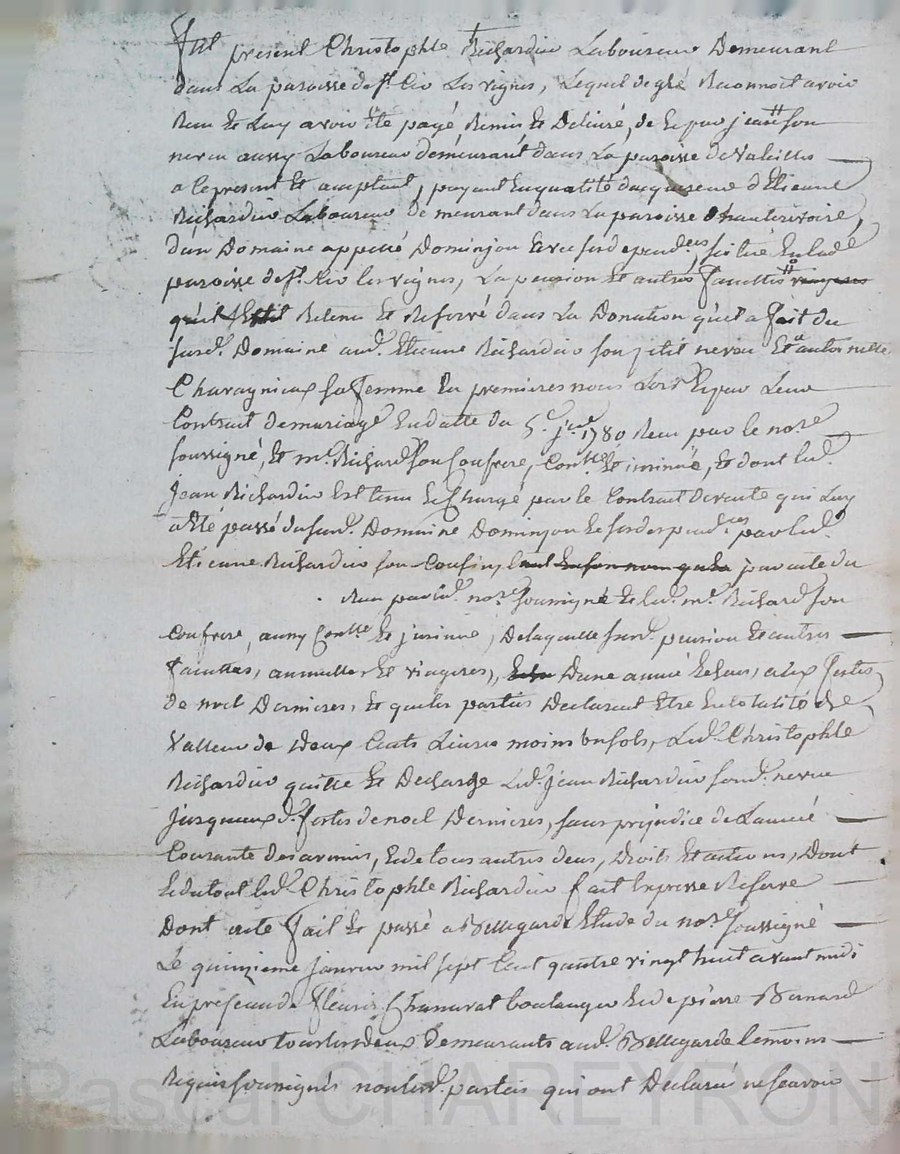 fut présent Christophle Richardier Laboureur Demeurant
dans La paroisse de St. Cir Les vignes, Lequel de gré Reconnoit avoir
Reçu et Luy avoir été payé, Remis et Délivré, de Sr jean son
neveu aussy Laboureur demeurant dans La paroisse de Valeilles
a Ce présent et acceptant, payant En qualité dacquereur d'Etienne
Richardier Laboureur demeurant dans La paroisse dhauterivoire,
dun Domaine appellé Dominjon avec ses dependces, situé En lade
paroisse de St. Cir les vignes, La pension et autres facultés viageres
qu'il s'est Retenu et Reservé dans La Donation qu'il a fait du
susd. Domaine aud. Etienne Richardier son petit neveu et a antoinette
Charagnieux sa femme En premieres noces Lors Leur
Contrait de mariage En datte du 5e. 1780 Reçu par le nore
soussigné, et me. Richard son Confrere, Contrlé et insinué, et dont led.
Jean Richardier Est tenu et Chargé par le Contrait de vente qui Luy
a été passé du susd. Domaine Dominjon et ses dependces par led.
Etienne Richardier son Cousin, par acte du
Reçu par led. nore soussigné et led. me. Richard son
Confrere, aussy Contlé et insinué, De laquelle susd. pension et autres
facultés, annuelles et viageres, Dune année Echeue, aux festes
de noel Dernieres, et que les parties Declarent Etre En totalité de
Valleur de Deux Cents Livres moins un sols, Led. Christophle
Richardier quitte et Decharge Led. Jean Richardier sond. neveu
Jusqueux d. festes de noel Dernieres, sans prejudice de Lannée
Courante des avenir, et de tous autres deus, Droits et actions, Dont
et du tout led. Christophle Richardier fait Expresse Reserve
Dont acte fait et passé a Bellegarde Etude du nore soussigné
Le quinzieme Janvier mil sept Cent quatre vingt huit avant midi
En presence de fleuris Chanavat boulanger et de pierre Bernard
Laboureur tous les deux demeurants aud. Bellegarde temoins
Requis soussignés non lesd. parties qui ont Declaré ne sçavoir
Pascal CHAREYRON